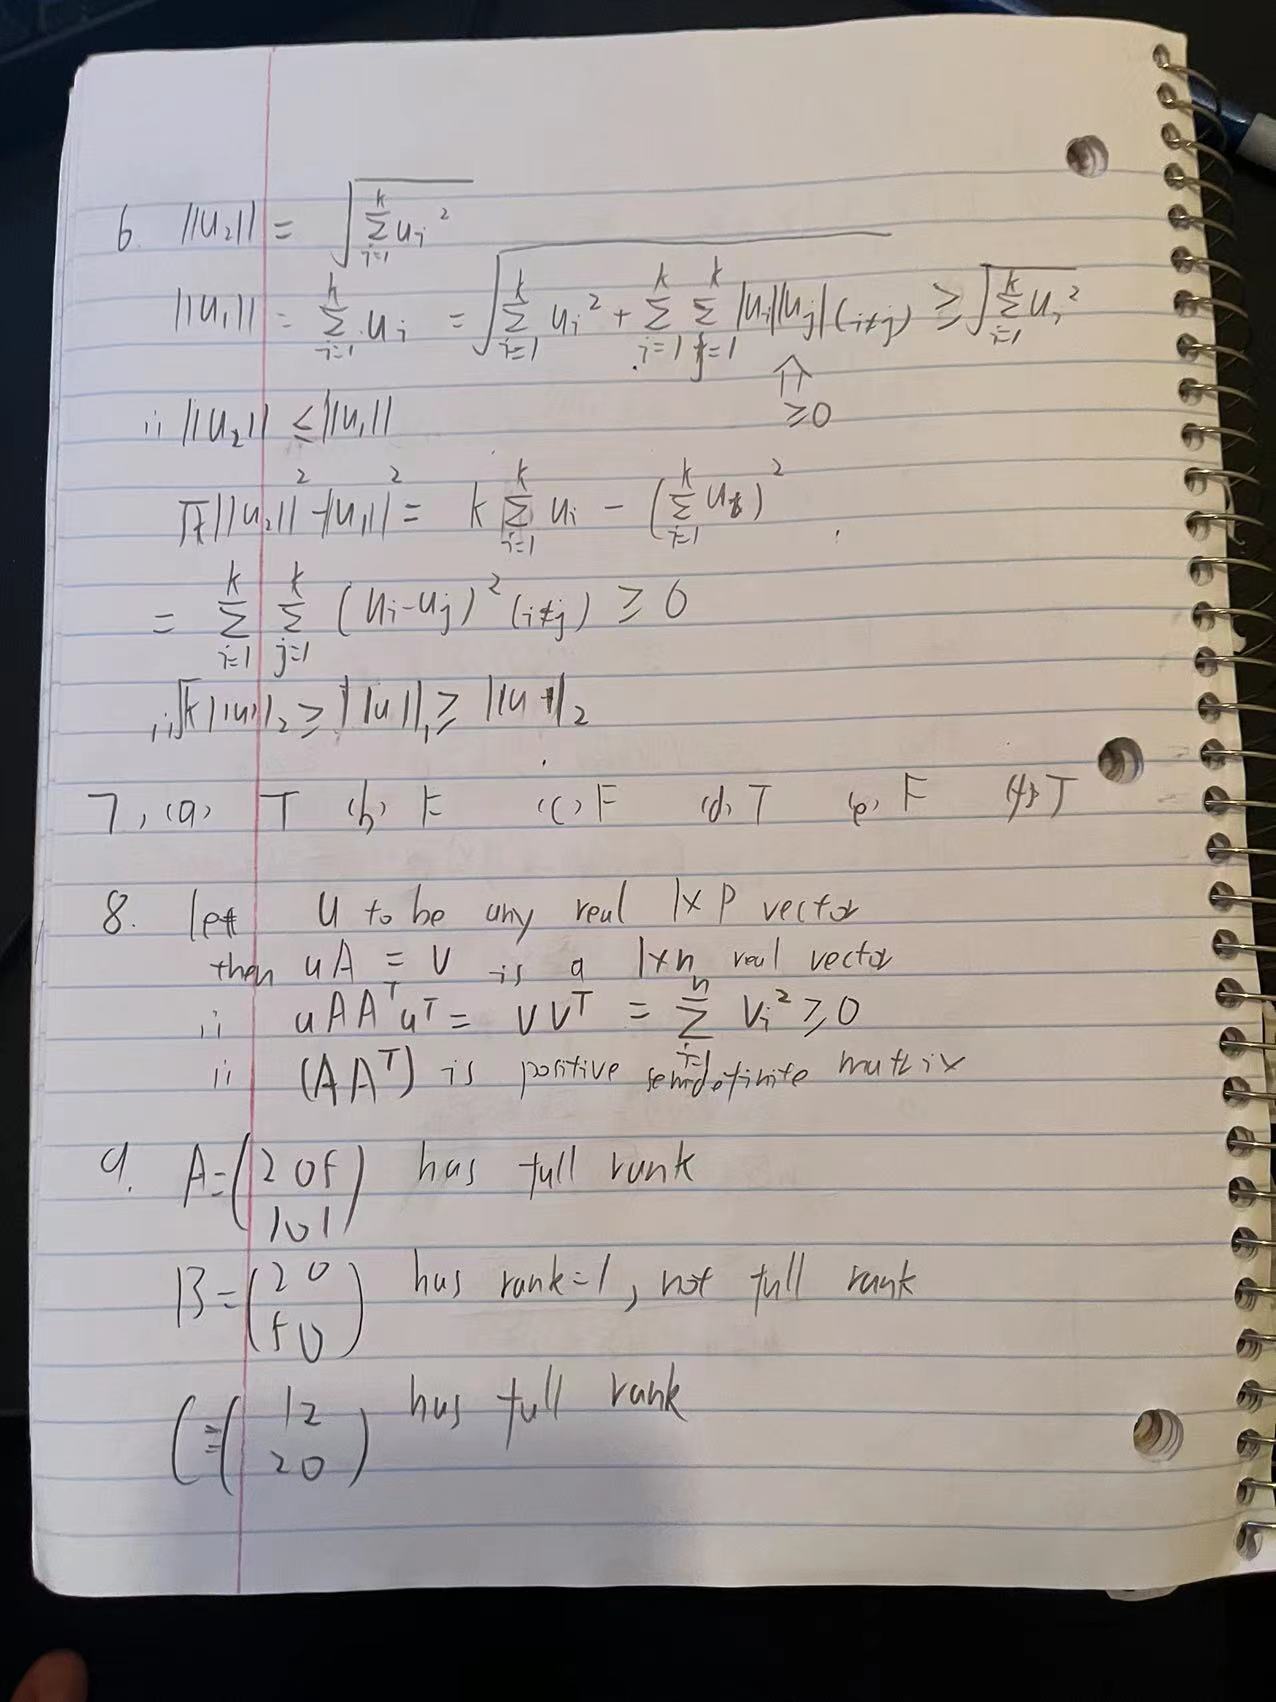 6. ||u₂|| = √(∑_{i=1}^{k} uᵢ²)
||u₁|| = ∑_{i=1}^{k} uᵢ = √(∑_{i=1}^{k} uᵢ² + ∑_{i=1}^{k} ∑_{j=1}^{k} |uᵢ||uⱼ| (i≠j)) ≥ √(∑_{i=1}^{k} uᵢ²)
⇑
≥0
∴ ||u₂|| ≤ ||u₁||
||u₂||² - ||u₁||² = k ∑_{i=1}^{k} uᵢ - (∑_{i=1}^{k} uᵢ)²
= ∑_{i=1}^{k} ∑_{j=1}^{k} (uᵢ-uⱼ)² (i≠j) ≥ 0
∴ √k ||u||₂ ≥ ||u||₁ ≥ ||u||₂
7. (a) T (b) F (c) F (d) T (e) F (f) T
8. let u to be any real 1×p vector
then uA = v is a 1×n real vector
∴ uAAᵀuᵀ = vvᵀ = ∑_{i=1}^{n} vᵢ² ≥ 0
∴ (AAᵀ) is positive semidefinite matrix
9. A = (2 0 5 has full rank
1 0 1)
B = (2 0 has rank=1, not full rank
5 0)
C = (1 2 has full rank
2 0)